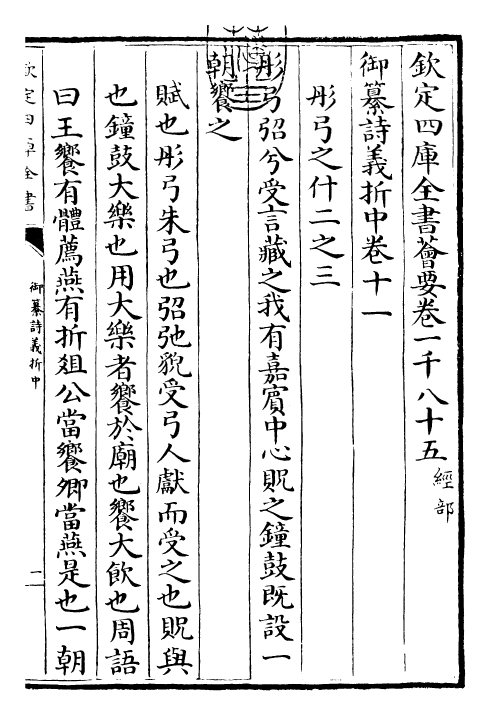 欽定四庫全書薈要卷一千八十五 經部
御纂詩義折中卷十一
彤弓之什二之三
彤弓弨兮受言藏之我有嘉賓中心貺之鐘鼓既設一
朝饗之
賦也彤弓朱弓也弨弛貌受弓人獻而受之也貺與
也鐘鼓大樂也用大樂者饗於廟也饗大飲也周語
曰王饗有體薦燕有折俎公當饗卿當燕是也一朝
欽定四庫全書
御纂詩義折中